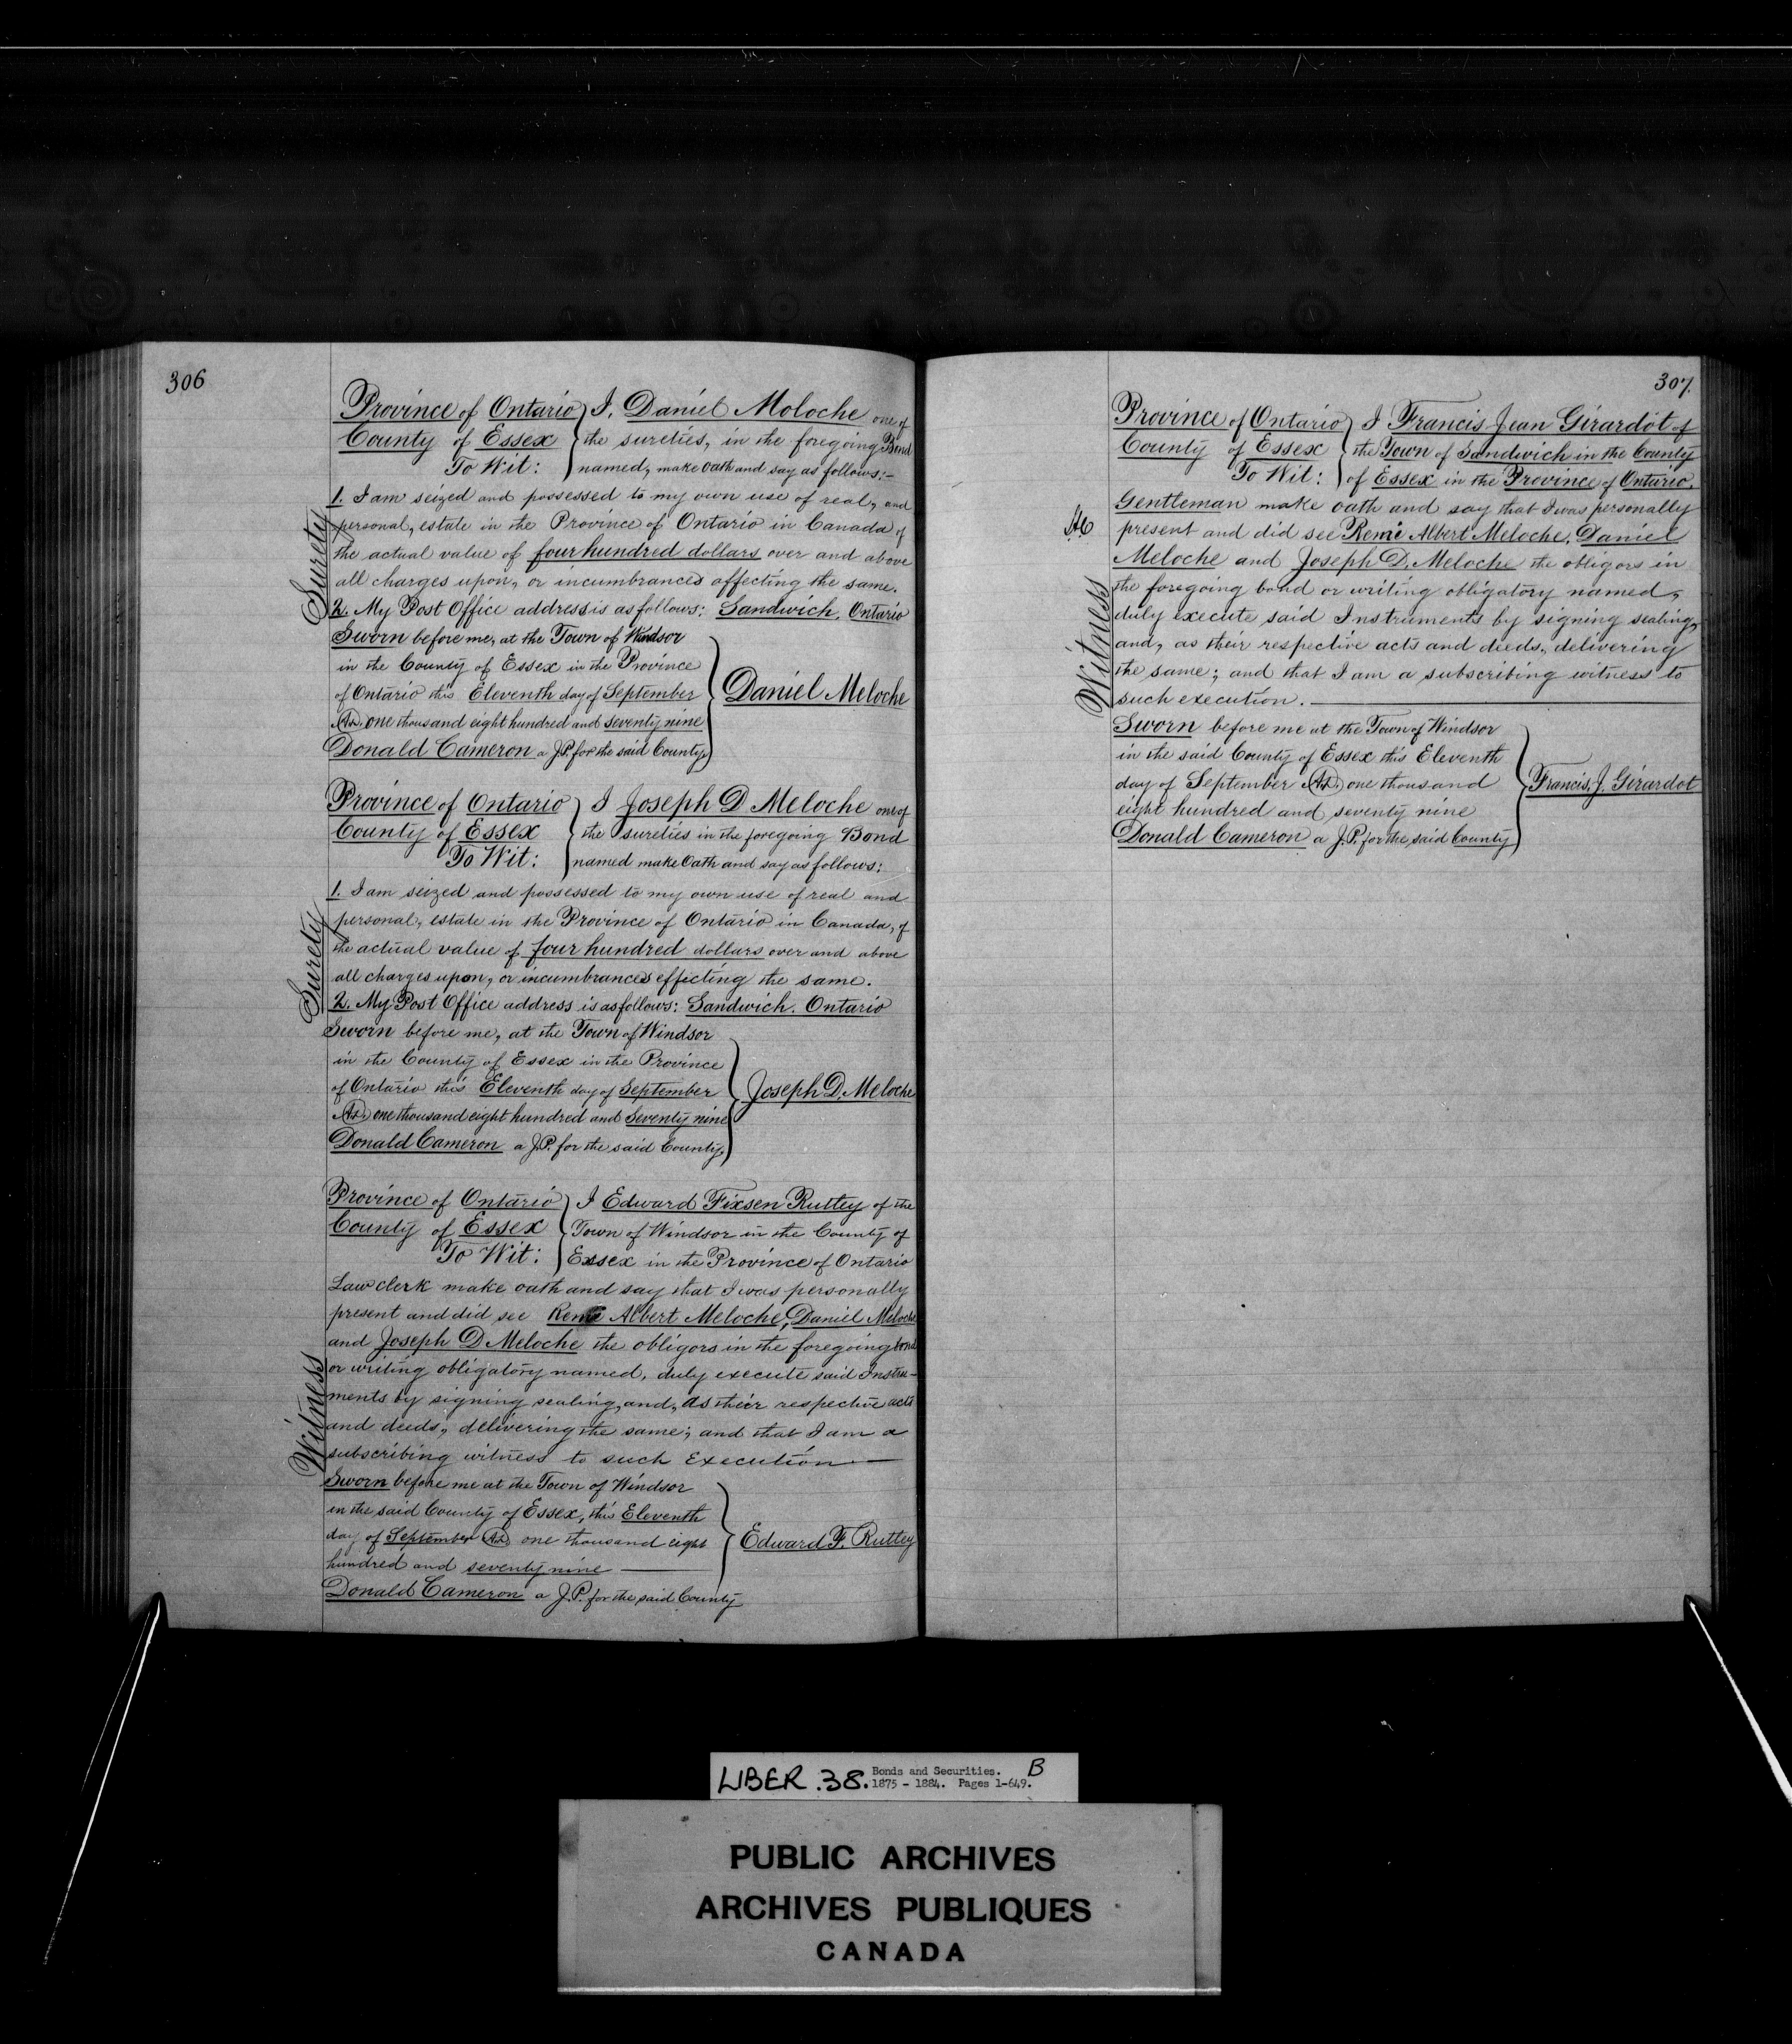 306
Province of Ontario } I, Daniel Moloche one of
County of Essex } the sureties, in the foregoing Bond
To Wit: } named, make oath and say as follows:-
Surety
1. I am seized and possessed to my own use of real, and
personal, estate in the Province of Ontario in Canada of
the actual value of four hundred dollars over and above
all charges upon, or incumbrances affecting the same.
2. My Post Office address is as follows: Sandwich, Ontario
Sworn before me, at the Town of Windsor
in the County of Essex in the Province
of Ontario this Eleventh day of September
A.D. one thousand eight hundred and seventy nine
Donald Cameron a J.P. for the said County.
Daniel Meloche
Province of Ontario } I Joseph D Meloche one of
County of Essex } the sureties in the foregoing Bond
To Wit: } named make Oath and say as follows:
Surety
1. I am seized and possessed to my own use of real and
personal, estate in the Province of Ontario in Canada, of
the actual value of four hundred dollars over and above
all charges upon, or incumbrances effecting the same.
2. My Post Office address is as follows: Sandwich. Ontario
Sworn before me, at the Town of Windsor
in the County of Essex in the Province
of Ontario this Eleventh day of September
A.D. one thousand eight hundred and Seventy nine
Donald Cameron a J.P. for the said County.
Joseph D. Meloche
Province of Ontario } I Edward Fixsen Ruttey of the
County of Essex } Town of Windsor in the County of
To Wit: } Essex in the Province of Ontario
Law clerk make oath and say that I was personally
present and did see Remé Albert Meloche, Daniel Meloche
and Joseph D Meloche the obligors in the foregoing bond
Witness
or writing obligatory named, duly execute said Instru-
ments by signing sealing, and, as their respective acts
and deeds, delivering the same; and that I am a
subscribing witness to such Execution.
Sworn before me at the Town of Windsor
in the said County of Essex, this Eleventh
day of September A.D. one thousand eight
hundred and seventy nine
Donald Cameron a J.P. for the said County
Edward F. Ruttey
307.
Province of Ontario } I Francis Jean Girardot of
County of Essex } the Town of Sandwich in the County
To Wit: } of Essex in the Province of Ontario.
Gentleman make oath and say that I was personally
present and did see Remé Albert Meloche, Daniel
Meloche and Joseph D. Meloche the obligors in
Witness
the foregoing bond or writing obligatory named,
duly execute said Instruments by signing sealing,
and, as their respective acts and deeds, delivering
the same; and that I am a subscribing witness to
such execution.
Sworn before me at the Town of Windsor
in the said County of Essex this Eleventh
day of September A.D. one thousand
eight hundred and seventy nine
Donald Cameron a J.P. for the said County
Francis. J. Girardot
LIBER .38. Bonds and Securities. B
1875 - 1884. Pages 1-649.
PUBLIC ARCHIVES
ARCHIVES PUBLIQUES
CANADA